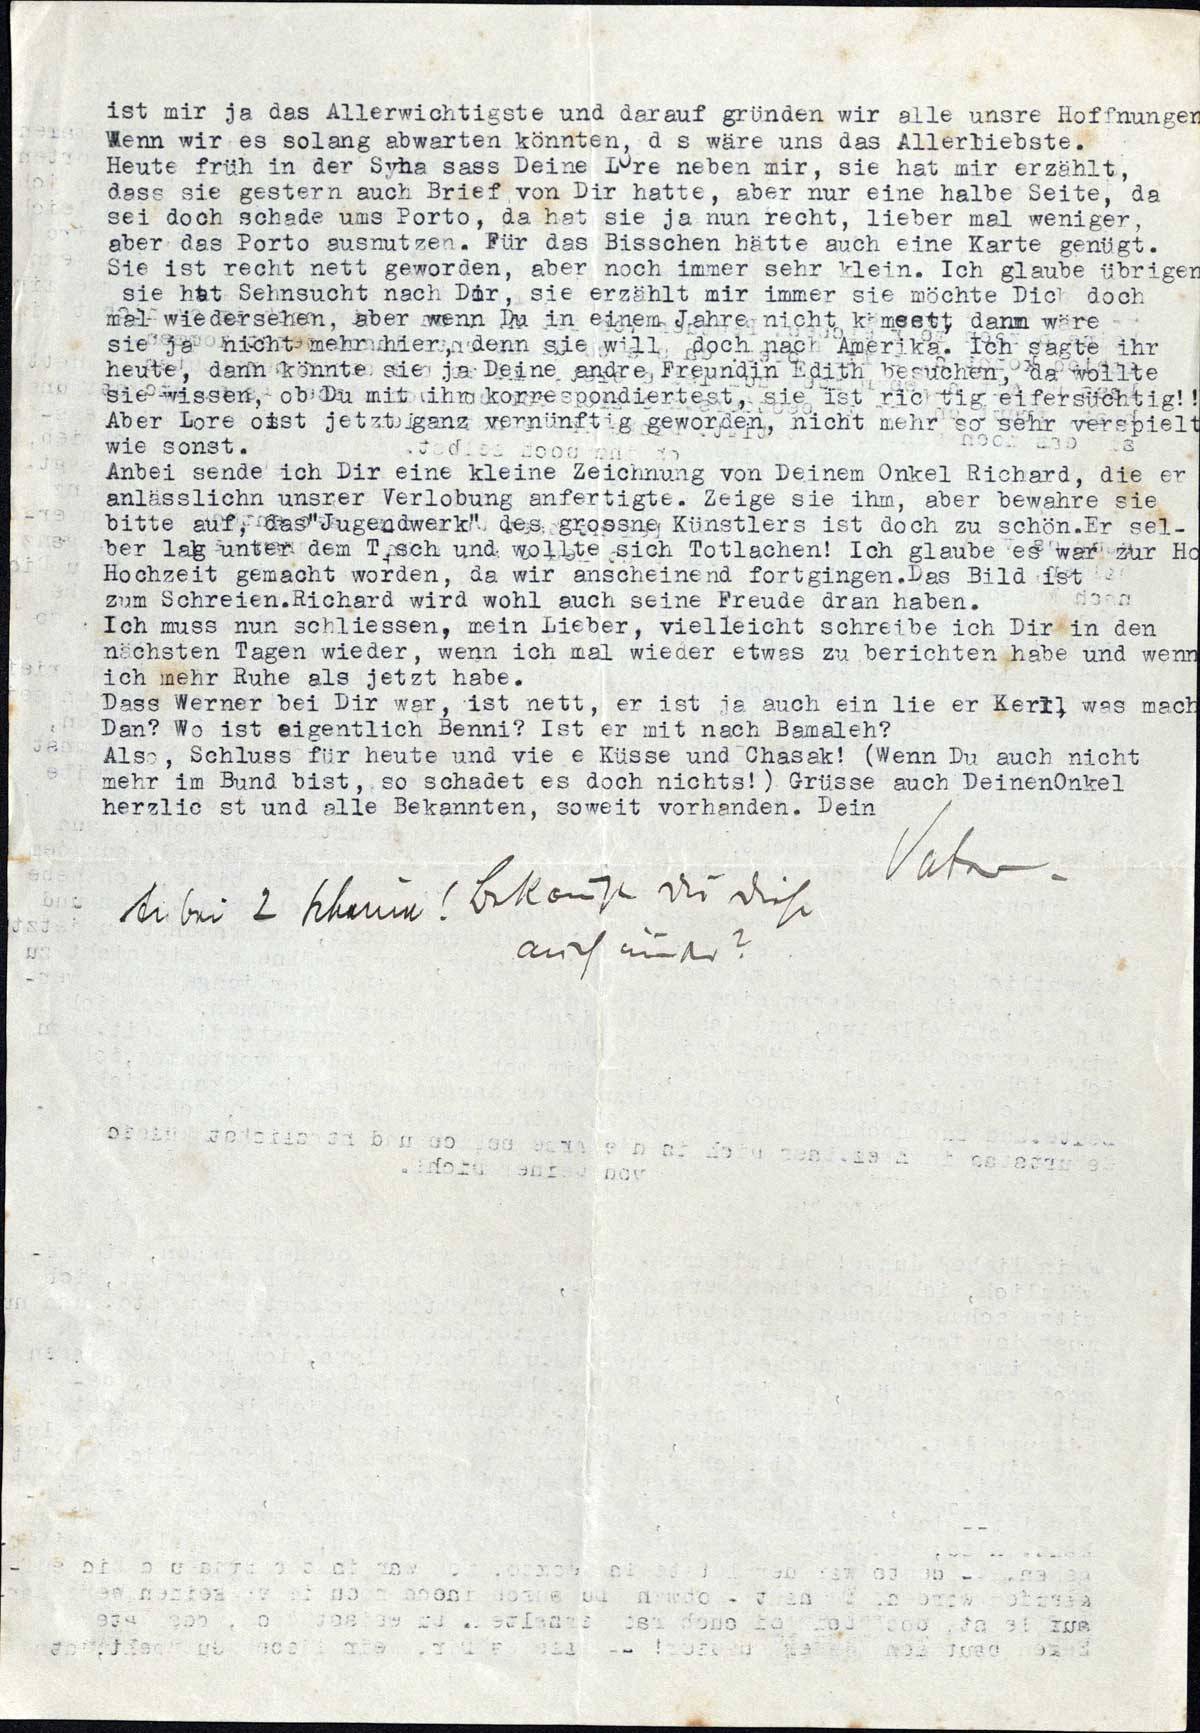 ist mir ja das Allerwichtigste und darauf gründen wir alle unsre Hoffnungen
Wenn wir es solang abwarten könnten, d s wäre uns das Allerliebste.
Heute früh in der Syha sass Deine Lore neben mir, sie hat mir erzählt,
dass sie gestern auch Brief von Dir hatte, aber nur eine halbe Seite, da
sei doch schade ums Porto, da hat sie ja nun recht, lieber mal weniger,
aber das Porto ausnutzen. Für das Bisschen hätte auch eine Karte genügt.
Sie ist recht nett geworden, aber noch immer sehr klein. Ich glaube übrigen
sie hat Sehnsucht nach Dir, sie erzählt mir immer sie möchte Dich doch
mal wiedersehen, aber wenn Du in einem Jahre nicht kämsett, dann wäre
sie ja nicht mehr hier, denn sie will doch nach Amerika. Ich sagte ihr
heute, dann könnte sie ja Deine andre Freundin Edith besuchen, da wollte
sie wissen, ob Du mit ihr korrespondiertest, sie ist ric tig eifersüchtig!!
Aber Lore oist jetzt ganz vernünftig geworden, nicht mehr so sehr verspielt
wie sonst.
Anbei sende ich Dir eine kleine Zeichnung von Deinem Onkel Richard, die er
anlässlichn unsrer Verlobung anfertigte. Zeige sie ihm, aber bewahre sie
bitte auf, das"Jugendwerk" des grossne Künstlers ist doch zu schön.Er sel-
ber lag unter dem Tisch und wollte sich Totlachen! Ich glaube es war zur Ho
Hochzeit gemacht worden, da wir anscheinend fortgingen.Das Bild ist
zum Schreien.Richard wird wohl auch seine Freude dran haben.
Ich muss nun schliessen, mein Lieber, vielleicht schreibe ich Dir in den
nächsten Tagen wieder, wenn ich mal wieder etwas zu berichten habe und wenn
ich mehr Ruhe als jetzt habe.
Dass Werner bei Dir war, ist nett, er ist ja auch ein lie er Kerl, was mach
Dan? Wo ist eigentlich Benni? Ist er mit nach Bamaleh?
Also, Schluss für heute und vie e Küsse und Chasak! (Wenn Du auch nicht
mehr im Bund bist, so schadet es doch nichts!) Grüsse auch DeinenOnkel
herzlic st und alle Bekannten, soweit vorhanden. Dein
Vater.
Anbei 2 Scheine! Bekamst Du diese
auch immer?